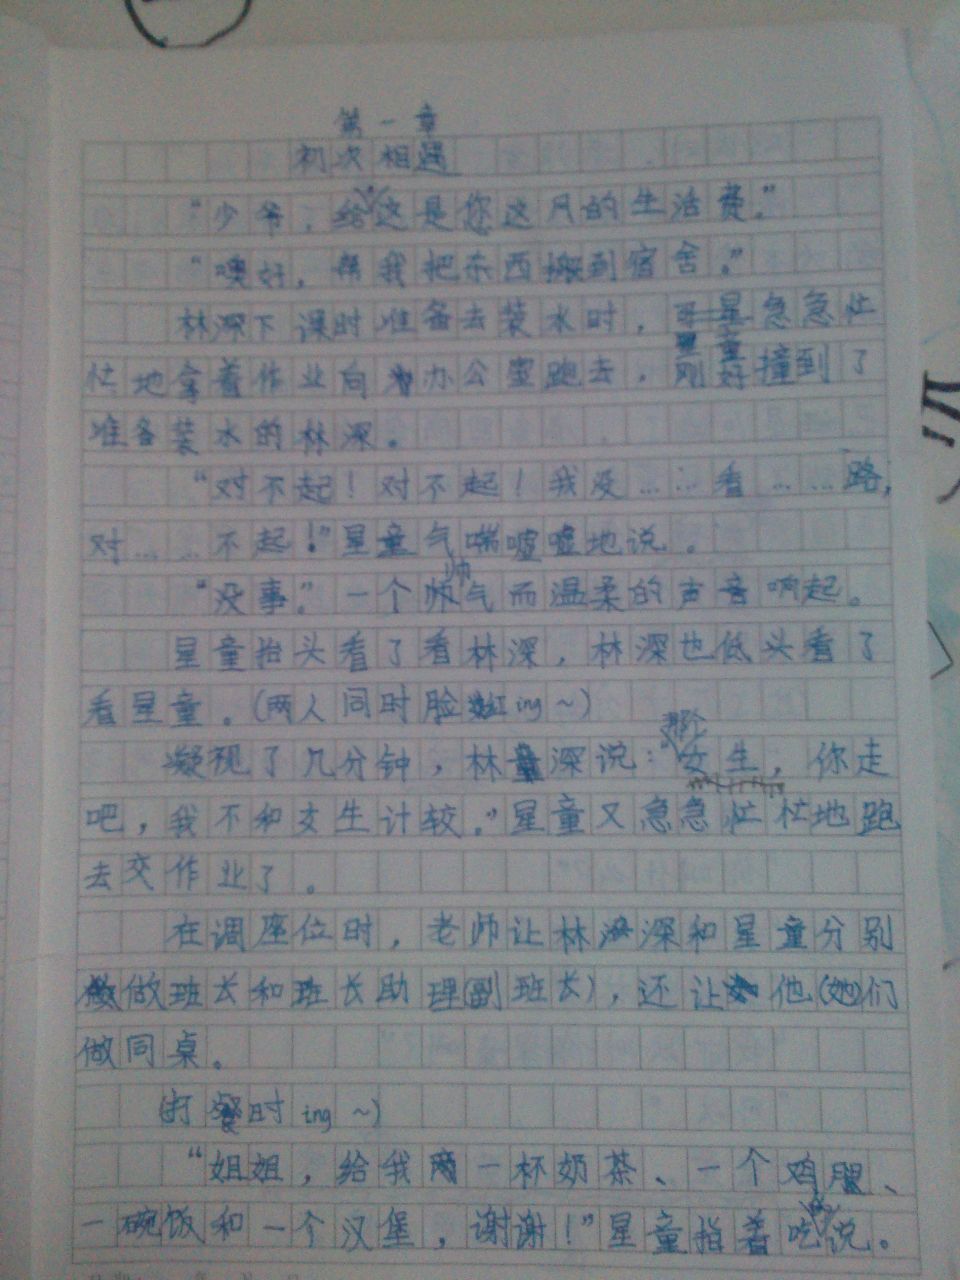 第一章
初次相遇
“少爷，给这是您这月的生活费。”
“噢好，帮我把东西搬到宿舍。”
林深下课时准备去装水时，星童急急忙
忙地拿着作业向办公室跑去，刚好撞到了
准备装水的林深。
“对不起！对不起！我没……看……路，
对……不起！”星童气喘嘘嘘地说。
“没事。”一个帅气而温柔的声音响起。
星童抬头看了看林深，林深也低头看了
看星童。（两人同时脸红ing～）
凝视了几分钟，林深说：女生，你走
吧，我不和女生计较。”星童又急急忙忙地跑
去交作业了。
在调座位时，老师让林深和星童分别
做班长和班长助理（副班长），还让他（她）们
做同桌。
（打餐时ing～）
“姐姐，给我一杯奶茶、一个鸡腿、
一碗饭和一个汉堡，谢谢！”星童指着吃说。